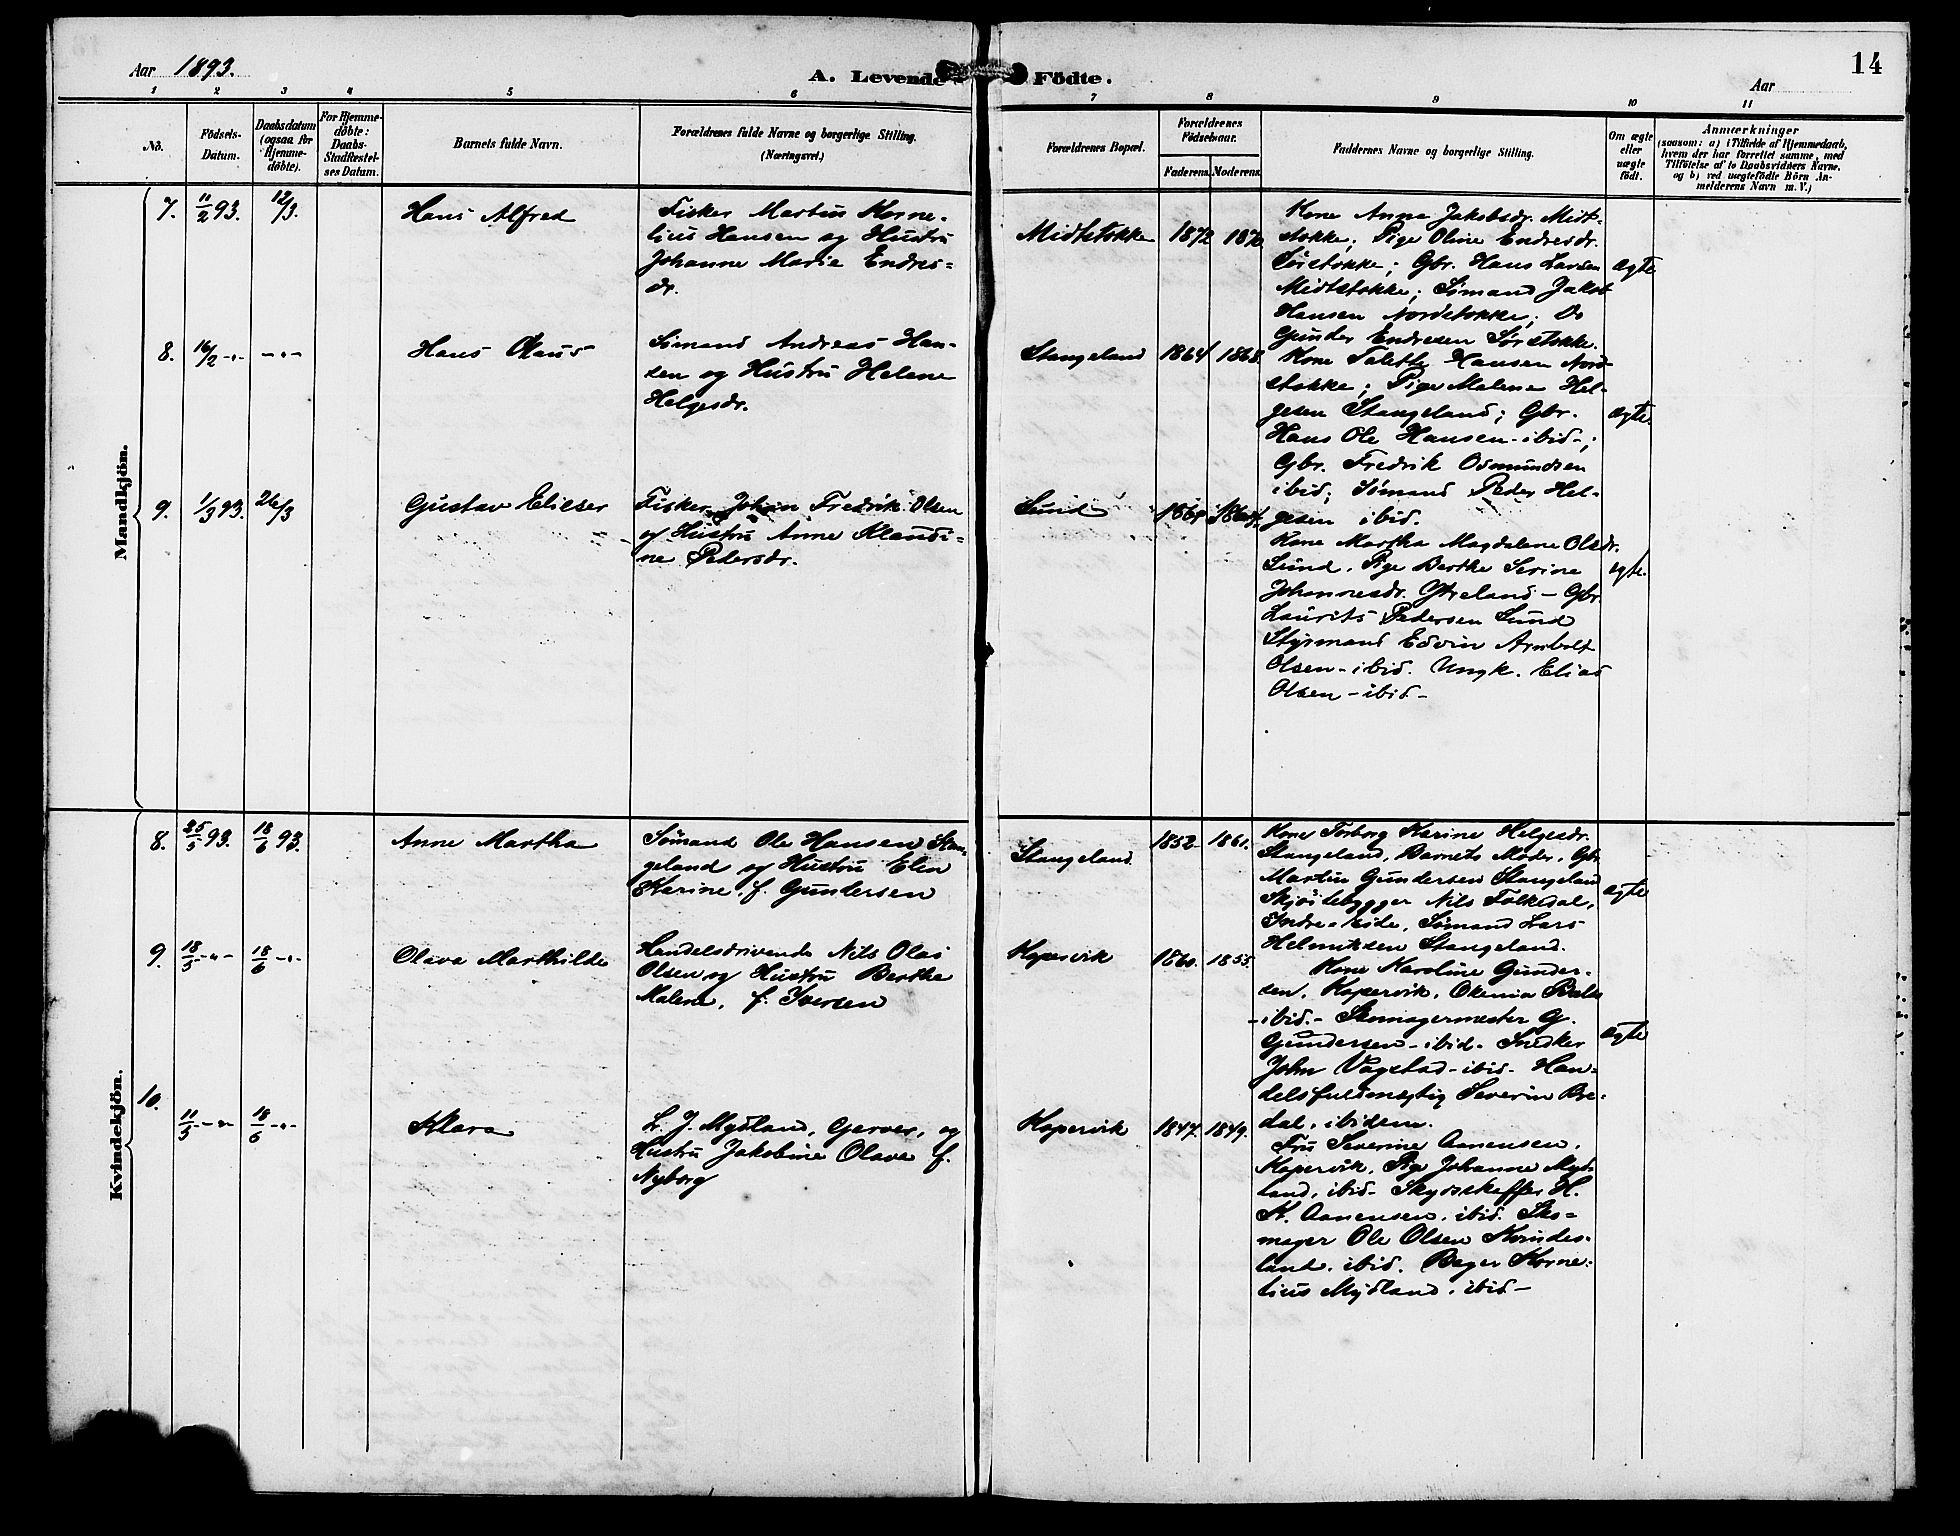 Aar 1893.
A. Levende Födte.
Aar
14
1 2 3 4 5 6 7 8 9 10 11
No.
Födsels-
Datum.
Daabsdatum
(ogsaa för
Hjemme-
döbte).
For Hjemme-
döbte:
Daabs-
Stadfæstel-
ses Datum.
Barnets fulde Navn.
Forældrenes fulde Navne og borgerlige Stilling.
(Næringsvei.)
Forældrenes Bopæl.
Forældrenes
Födselsaar.
Faderens. Moderens.
Faddernes Navne og borgerlige Stilling.
Om ægte
eller
uægte
födt.
Anmærkninger
(saasom: a) i Tilfælde af Hjemmedaab,
hvem der har forrettet samme, med
Tilföielse af to Daabsvidners Navne,
og b) ved uægtefödte Börn An-
melderens Navn m. V.)
Mandkjön.
7. 11/2 93. 12/3.
Hans Alfred
Fisker Martin Korne-
lius Hansen og Hustru
Johanne Marie Endres-
dr.
Midtstokke 1872 1870
Kone Anna Jakobsdr. Midt-
stokke; Pige Oline Endresdr.
Sörstokke; Gbr. Hans Larsen
Midtstokke; Sömand Jakob
Hansen Nordstokke; Do
Gunder Endresen Sörstokke.
ægte
8. 16/2 -"- -"-
Hans Olaus
Sömand Andreas Han-
sen og Hustru Helene
Helgesdr.
Stangeland 1864 1868.
Kone Talette Hansen Nord-
stokke; Pige Malene Hel-
gesen Stangeland; Gbr.
Hans Ole Hansen -ibid-;
Gbr. Fredrik Osmundsen
ibid; Sömand Peder Hel-
gesen ibid.
ægte.
9. 1/3 93. 26/3
Gustav Elieser
Fisker Johan Fredrik Olsen
og Hustru Anne Klaudi-
ne Pedersdr.
Lund
Kone Martha Magdalene Olsdr.
Lund. Pige Berthe Serine
Johannesdr. Ytreland - Gbr.
Laurits Pedersen Lund
Styrmand Edvin Arnholt
Olsen -ibid. Ungk. Elias
Olsen -ibid-
ægte.
Kvindekjön.
8. 25/5 93. 18/6 93.
Anne Martha
Sömand Ole Hansen Stan-
geland og Hustru Elen
Karine f. Gundersen
Stangeland. 1852 1861.
Kone Torborg Karine Helgesdr.
Stangeland, Barnets Moder, Gbr
Martin Gundersen Stangeland
Skjöitebygger Nils Falkedal,
Indre Eide, Sömand Lars
Helmiksen Stangeland.
ægte
9. 18/5 -"- 18/6 -"-
Olava Marthilde
Handelsdrivende Nils Olai
Olsen og Hustru Berthe
Malene, f. Iversen
Kopervik 1860. 1855.
Kone Karoline Gunder-
sen, Kopervik,
-ibid.- Skomagermester G.
Gundersen -ibid- Snedker
John Vagstad -ibid- Han-
delsfuldmegtig Severin Bre-
dal, ibidem.
ægte
10. 11/5 -"- 18/6 -"-
Klara
L. J. Mydland, Garver, og
Hustru Jakobine Olave f.
Nyborg
Kopervik 1847. 1849.
Fru Severine Aanensen,
Kopervik, Pige Johanne Myd-
land, ibid- Skydsskaffer H.
K. Aanensen, ibid. Sko-
mager Ole Olsen Kvindes-
land, ibid. Bager Korne-
lius Mydland, ibid-